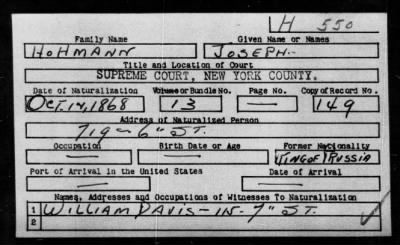 H 550
Family Name Given Name or Names
HOHMANN JOSEPH-
Title and Location of Court
SUPREME COURT, NEW YORK COUNTY.
Date of Naturalization Volume or Bundle No. Page No. Copy of Record No.
OCT. 14, 1868 13 — 149
Address of Naturalized Person
719-6" ST.
Occupation Birth Date or Age Former Nationality
— — KING OF PRUSSIA
Port of Arrival in the United States Date of Arrival
— —
Names, Addresses and Occupations of Witnesses To Naturalization
1 WILLIAM DAVIS-IN-7" ST.
2